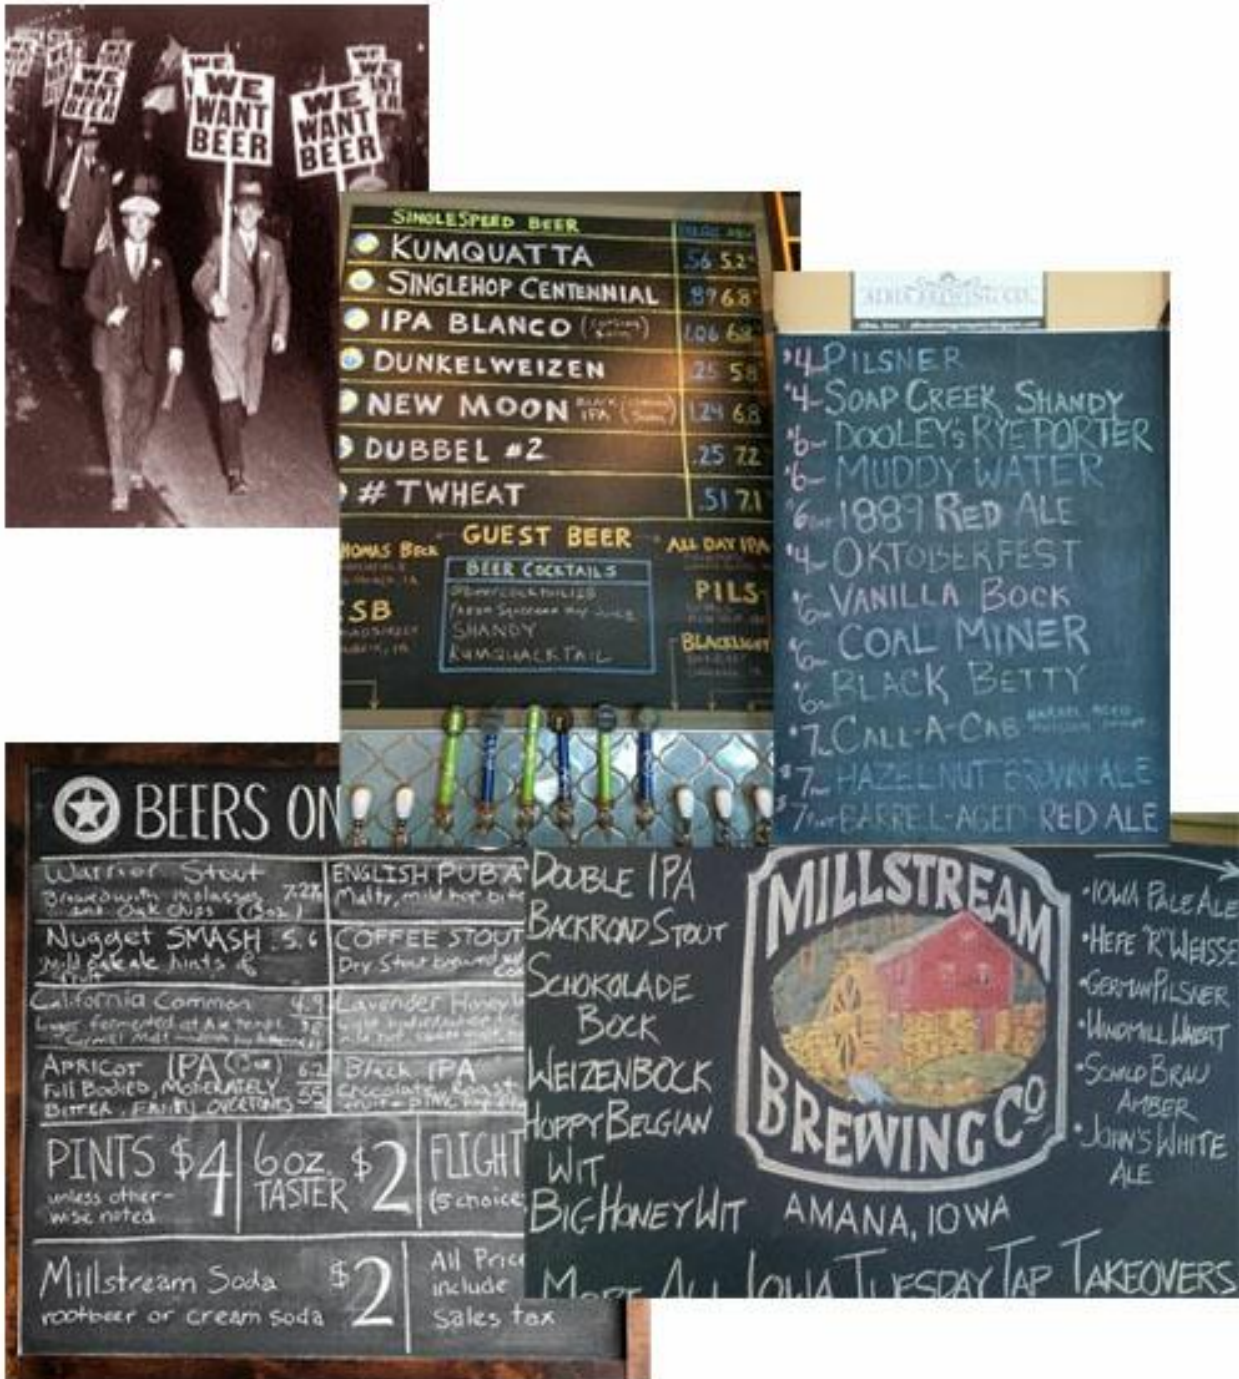 WE
WANT
BEER
WE
WANT
BEER
WE
WANT
BEER
WE
WE
WANT
BEER
SINGLESPEED BEER
KUMQUATTA .56 5.2
SINGLEHOP CENTENNIAL .89 6.8
IPA BLANCO 1.06 6.8
DUNKELWEIZEN .25 5.8
NEW MOON BLACK IPA 1.24 6.8
DUBBEL #2 .25 7.2
#TWHEAT .51 7.1
GUEST BEER
ALL DAY IPA
BEER COCKTAILS
SHANDY
KUMQUACKTAIL
SB
PILS
BLACKLIGHT
$4 PILSNER
$4 SOAP CREEK SHANDY
$6 DOOLEY'S RYE PORTER
$6 MUDDY WATER
$6 1889 RED ALE
$4 OKTOBERFEST
$6 VANILLA BOCK
$6 COAL MINER
$6 BLACK BETTY
$7 CALL-A-CAB
$7 HAZELNUT BROWN ALE
$7 BARREL-AGED RED ALE
BEERS ON
Warrior Stout 7.2%
Brewed with molasses
and Oak Chips
Nugget SMASH 5.6
California Common 4.9
Lager fermented at Ale temps
APRICOT IPA 6.2
FULL BODIED, MODERATELY 55
BITTER, FRUITY OVERTONES
ENGLISH PUB A
Malty, mild hop bit
COFFEE STOUT
Dry Stout brewed w
Lavender Honey
Black IPA
PINTS $4
unless other-
wise noted
6 oz. $2
TASTER
FLIGHT
(5 choice
Millstream Soda $2
rootbeer or cream soda
All Price
include
Sales tax
DOUBLE IPA
BACKROAD STOUT
SCHOKOLADE
BOCK
WEIZENBOCK
HOPPY BELGIAN
WIT
BIG HONEY WIT
MILLSTREAM
BREWING CO
AMANA, IOWA
•IOWA PALE ALE
•HEFE "R" WEISSE
•GERMAN PILSNER
•WINDMILL WHEAT
•SCHILD BRAU
AMBER
•JOHN'S WHITE
ALE
MORE ALL IOWA TUESDAY TAP TAKEOVERS